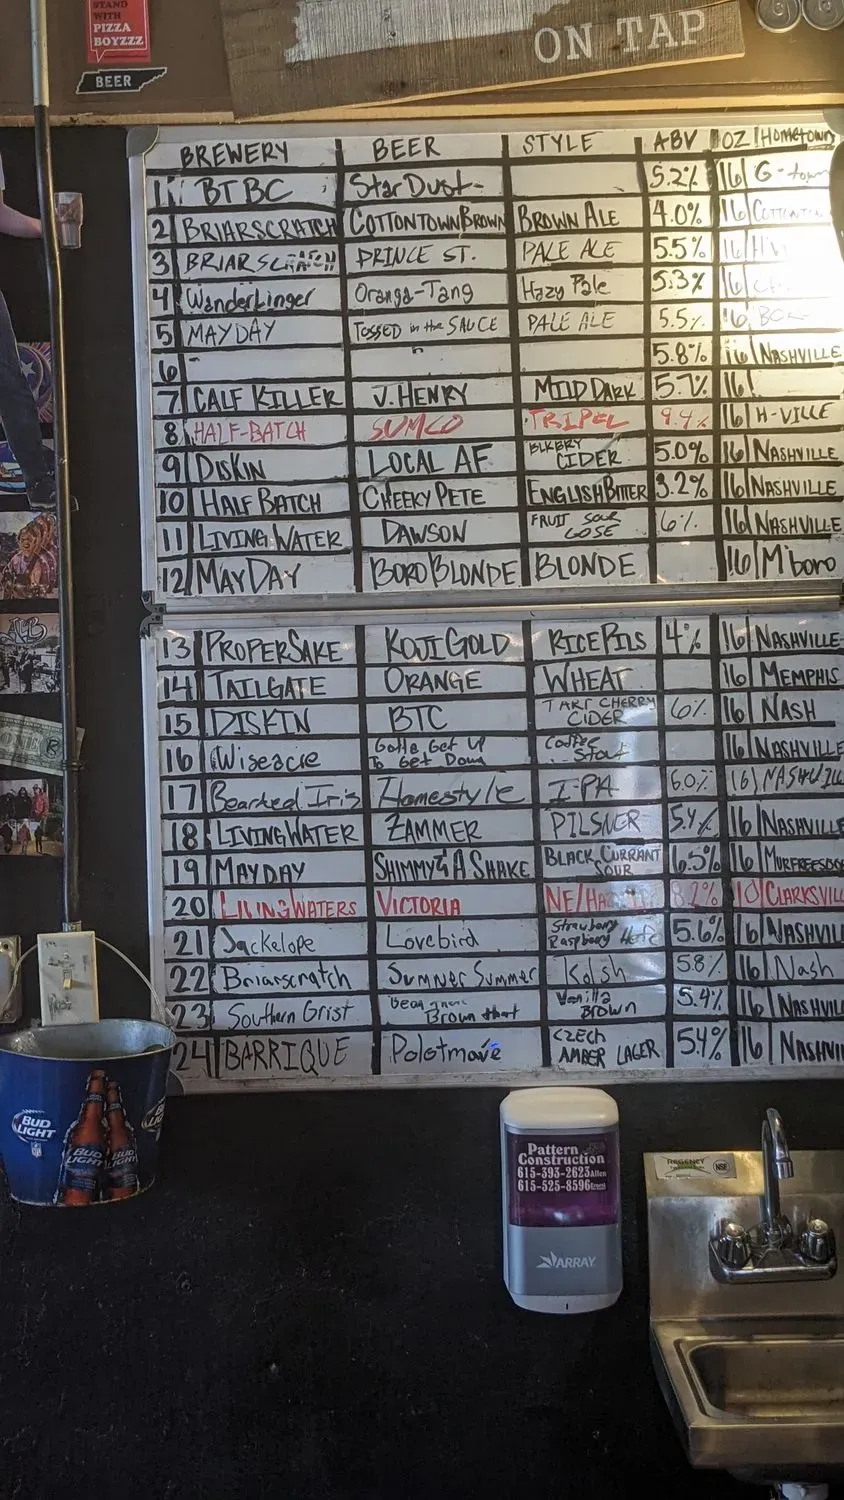 STAND
WITH
PIZZA
BOYZZZ
BEER
ON TAP
BREWERY BEER STYLE ABV OZ Hometown
1 BTBC StarDust 5.2% 16 G-town
2 BRIARSCRATCH COTTONTOWN BROWN BROWN ALE 4.0% 16
3 BRIARSCRATCH PRINCE ST. PALE ALE 5.5% 16
4 WanderLinger Oranga-Tang Hazy Pale 5.3% 16
5 MAYDAY TOSSED in the SAUCE PALE ALE 5.5% 16
6 5.8% 16 NASHVILLE
7 CALF KILLER J. HENRY MILD DARK 5.7% 16
8 HALF-BATCH SUMCO TRIPEL 9.4% 16 H-VILLE
9 DISKIN LOCAL AF BLKBRY CIDER 5.0% 16 NASHVILLE
10 HALF BATCH CHEEKY PETE ENGLISH BITTER 3.2% 16 NASHVILLE
11 LIVING WATER DAWSON FRUIT SOUR GOSE 6% 16 NASHVILLE
12 MAYDAY BORO BLONDE BLONDE 16 M'boro
13 PROPER SAKE KOJI GOLD RICE PILS 4% 16 NASHVILLE
14 TAILGATE ORANGE WHEAT 16 MEMPHIS
15 DISKIN BTC TART CHERRY CIDER 6% 16 NASH
16 Wiseacre Gotta Get Up To Get Down Coffee Stout 16 NASHVILLE
17 Bearded Iris Homestyle IPA 6.0% 16 NASHVILLE
18 LIVING WATER ZAMMER PILSNER 5.4% 16 NASHVILLE
19 MAYDAY SHIMMY & A SHAKE BLACK CURRANT SOUR 6.5% 16 MURFREESBO
20 LIVING WATERS VICTORIA NE/ 8.2% 10 CLARKSVILL
21 Jackelope Lovebird Strawberry Raspberry Hefe 5.6% 16 NASHVILL
22 Briarscratch Sumner Summer Kolsh 5.8% 16 Nash
23 Southern Grist Brown that Vanilla Brown 5.4% 16 NASHVILL
24 BARRIQUE Polotmavé CZECH AMBER LAGER 5.4% 16 NASHVI
BUD
LIGHT
BUD
LIGHT
BUD
LIGHT
Pattern
Construction
615-393-2623 Allen
615-525-8596
ARRAY
REGENCY
NSE